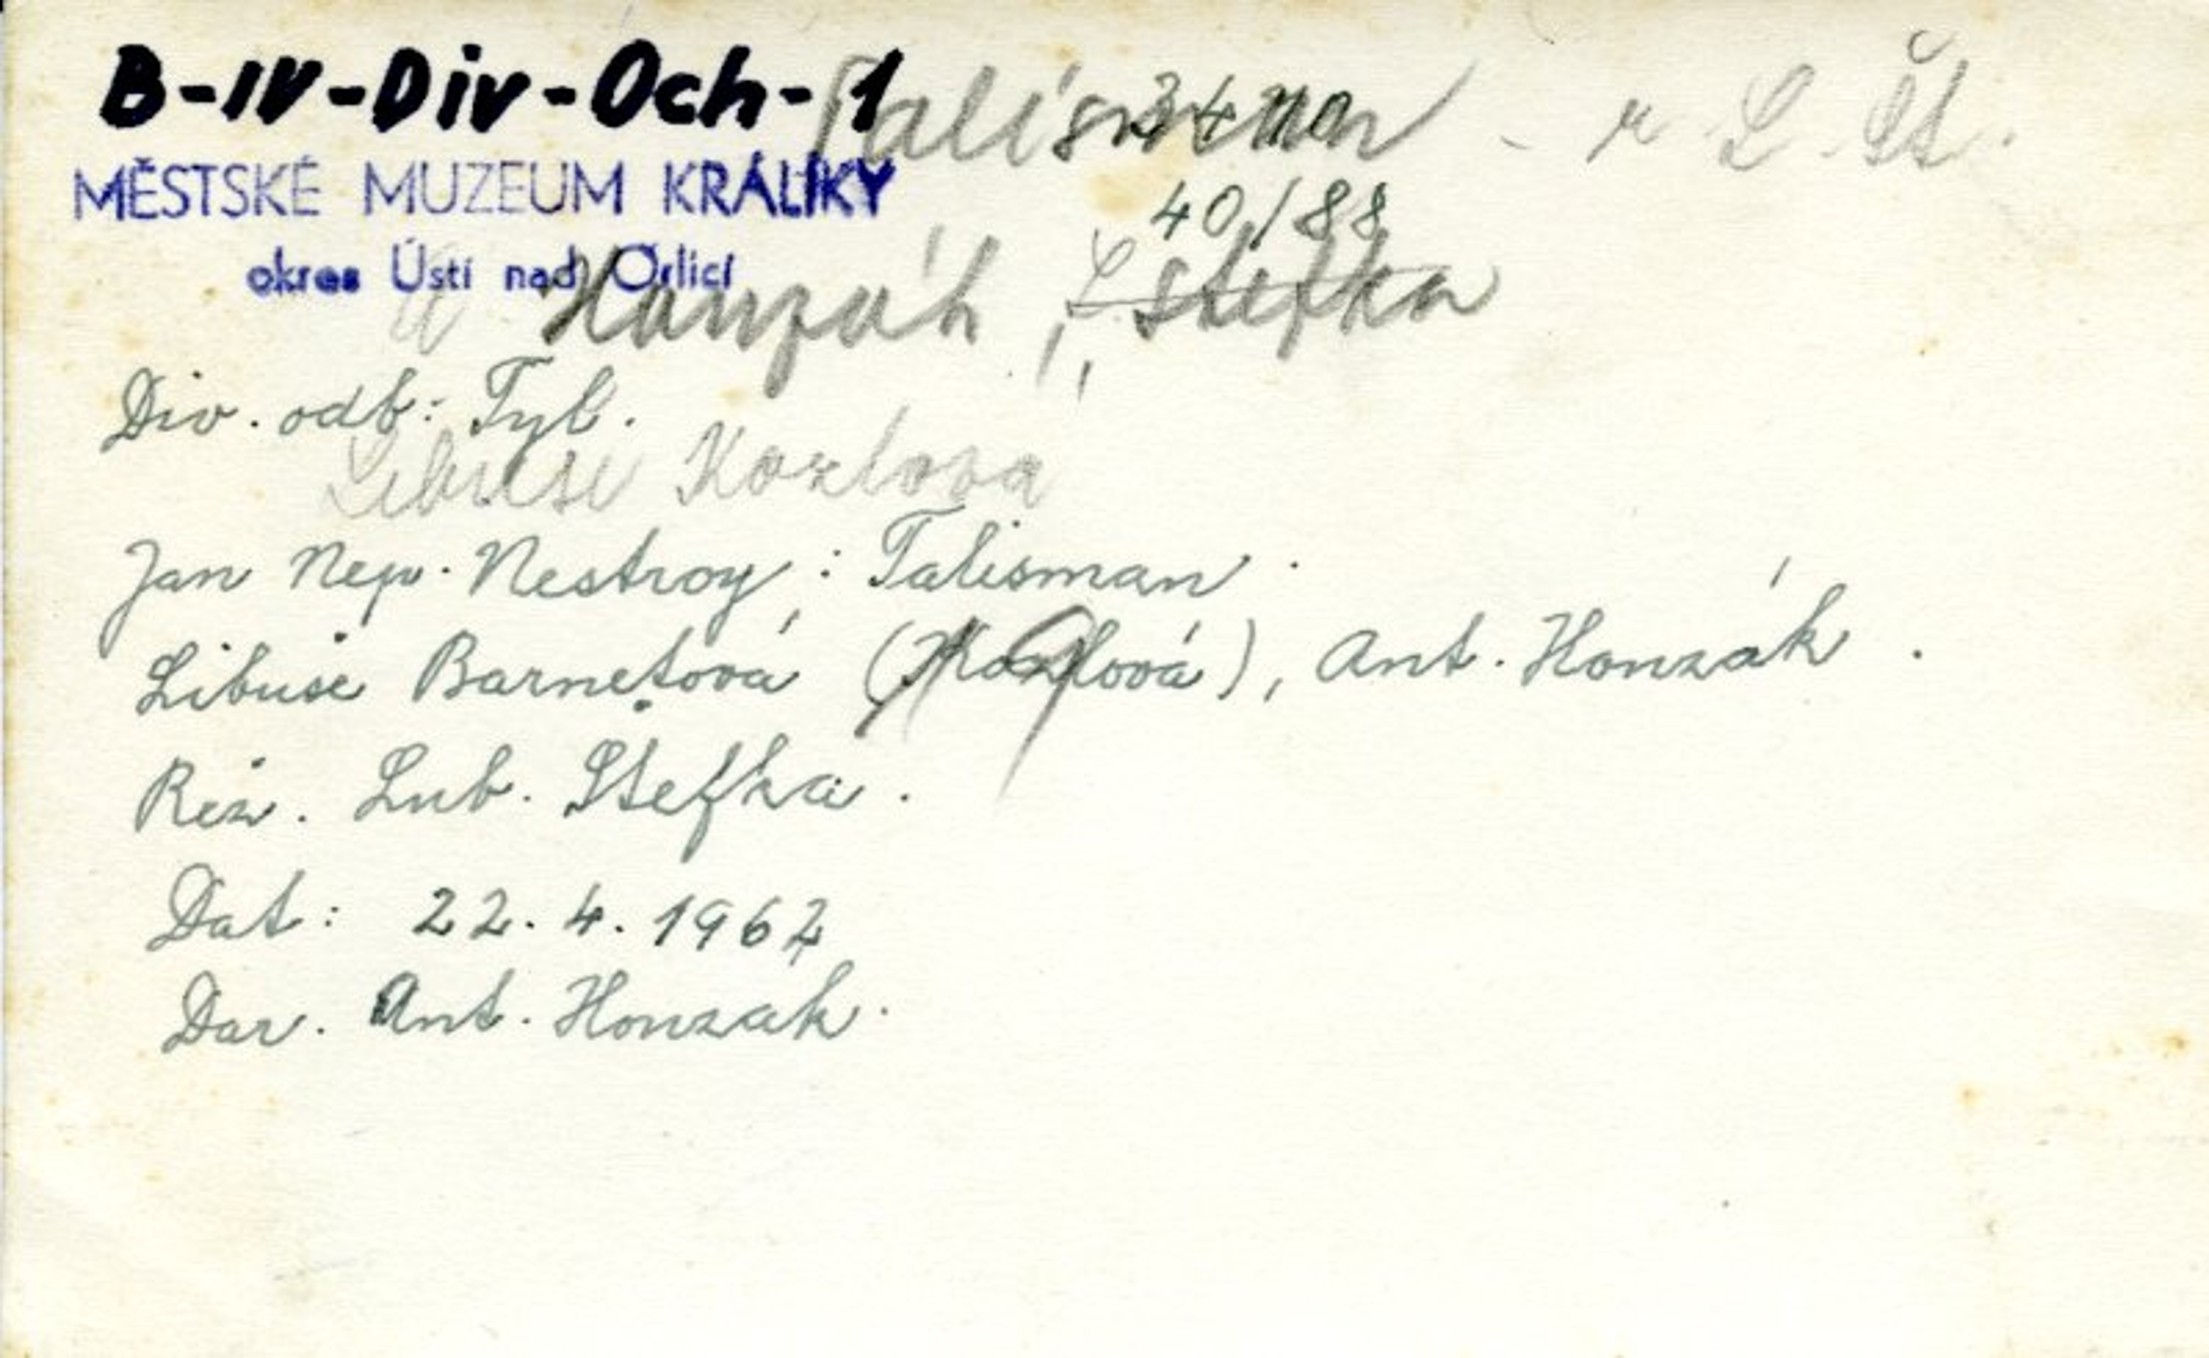 B-IV-Div-Och-1
Talisman - r L. Št.
MĚSTSKÉ MUZEUM KRÁLÍKY
40/88
okres Ústí nad Orlicí
A Honzák, L. Štefka
Div. odb: Tyl.
Libuše Kozlova
Jan Nep. Nestroy: Talisman.
Libuše Barnetová (Kozlová), Ant. Honzák.
Rež. Lub. Štefka.
Dat: 22. 4. 1962
Dar. Ant. Honzak.